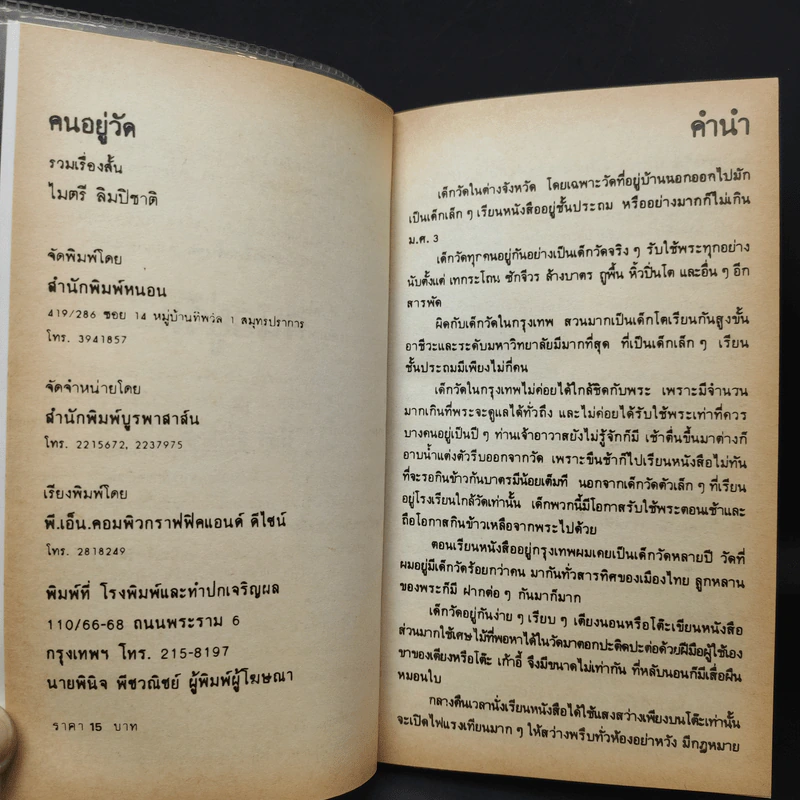 คนอยู่วัด
รวมเรื่องสั้น
ไมตรี ลิมปิชาติ
จัดพิมพ์โดย
สำนักพิมพ์หนอน
419/286 ซอย 14 หมู่บ้านทิพวัล 1 สมุทรปราการ
โทร. 3941857
จัดจำหน่ายโดย
สำนักพิมพ์บูรพาสาส์น
โทร. 2215672, 2237975
เรียงพิมพ์โดย
พี.เอ็น.คอมพิวกราฟฟิคแอนด์ ดีไซน์
โทร. 2818249
พิมพ์ที่ โรงพิมพ์และทำปกเจริญผล
110/66-68 ถนนพระราม 6
กรุงเทพฯ โทร. 215-8197
นายพินิจ พืชวณิชย์ ผู้พิมพ์ผู้โฆษณา
ราคา 15 บาท
คำนำ
เด็กวัดในต่างจังหวัด โดยเฉพาะวัดที่อยู่บ้านนอกออกไปมัก
เป็นเด็กเล็ก ๆ เรียนหนังสืออยู่ชั้นประถม หรืออย่างมากก็ไม่เกิน
ม.ศ. 3
เด็กวัดทุกคนอยู่กันอย่างเป็นเด็กวัดจริง ๆ รับใช้พระทุกอย่าง
นับตั้งแต่ เทกระโถน ซักจีวร ล้างบาตร ถูพื้น หิ้วปิ่นโต และอื่น ๆ อีก
สารพัด
ผิดกับเด็กวัดในกรุงเทพ สวนมากเป็นเด็กโตเรียนกันสูงขั้น
อาชีวะและระดับมหาวิทยาลัยมีมากที่สุด ที่เป็นเด็กเล็ก ๆ เรียน
ชั้นประถมมีเพียงไม่กี่คน
เด็กวัดในกรุงเทพไม่ค่อยได้ใกล้ชิดกับพระ เพราะมีจำนวน
มากเกินที่พระจะดูแลได้ทั่วถึง และไม่ค่อยได้รับใช้พระเท่าที่ควร
บางคนอยู่เป็นปี ๆ ท่านเจ้าอาวาสยังไม่รู้จักก็มี เช้าตื่นขึ้นมาต่างก็
อาบน้ำแต่งตัวรีบออกจากวัด เพราะขืนช้าก็ไปเรียนหนังสือไม่ทัน
ที่จะรอกินข้าวก้นบาตรมีน้อยเต็มที นอกจากเด็กวัดตัวเล็ก ๆ ที่เรียน
อยู่โรงเรียนใกล้วัดเท่านั้น เด็กพวกนี้มีโอกาสรับใช้พระตอนเช้าและ
ถือโอกาสกินข้าวเหลือจากพระไปด้วย
ตอนเรียนหนังสืออยู่กรุงเทพผมเคยเป็นเด็กวัดหลายปี วัดที่
ผมอยู่มีเด็กวัดร้อยกว่าคน มากันทั่วสารทิศของเมืองไทย ลูกหลาน
ของพระก็มี ฝากต่อ ๆ กันมาก็มาก
เด็กวัดอยู่กันง่าย ๆ เรียบ ๆ เตียงนอนหรือโต๊ะเขียนหนังสือ
ส่วนมากใช้เศษไม้ที่พอหาได้ในวัดมาตอกปะติดปะต่อด้วยฝีมือผู้ใช้เอง
ขาของเตียงหรือโต๊ะ เก้าอี้ จึงมีขนาดไม่เท่ากัน ที่หลับนอนก็มีเสื่อผืน
หมอนใบ
กลางคืนเวลานั่งเรียนหนังสือได้ใช้แสงสว่างเพียงบนโต๊ะเท่านั้น
จะเปิดไฟแรงเทียนมาก ๆ ให้สว่างพรึบทั่วห้องอย่าหวัง มีกฎหมาย